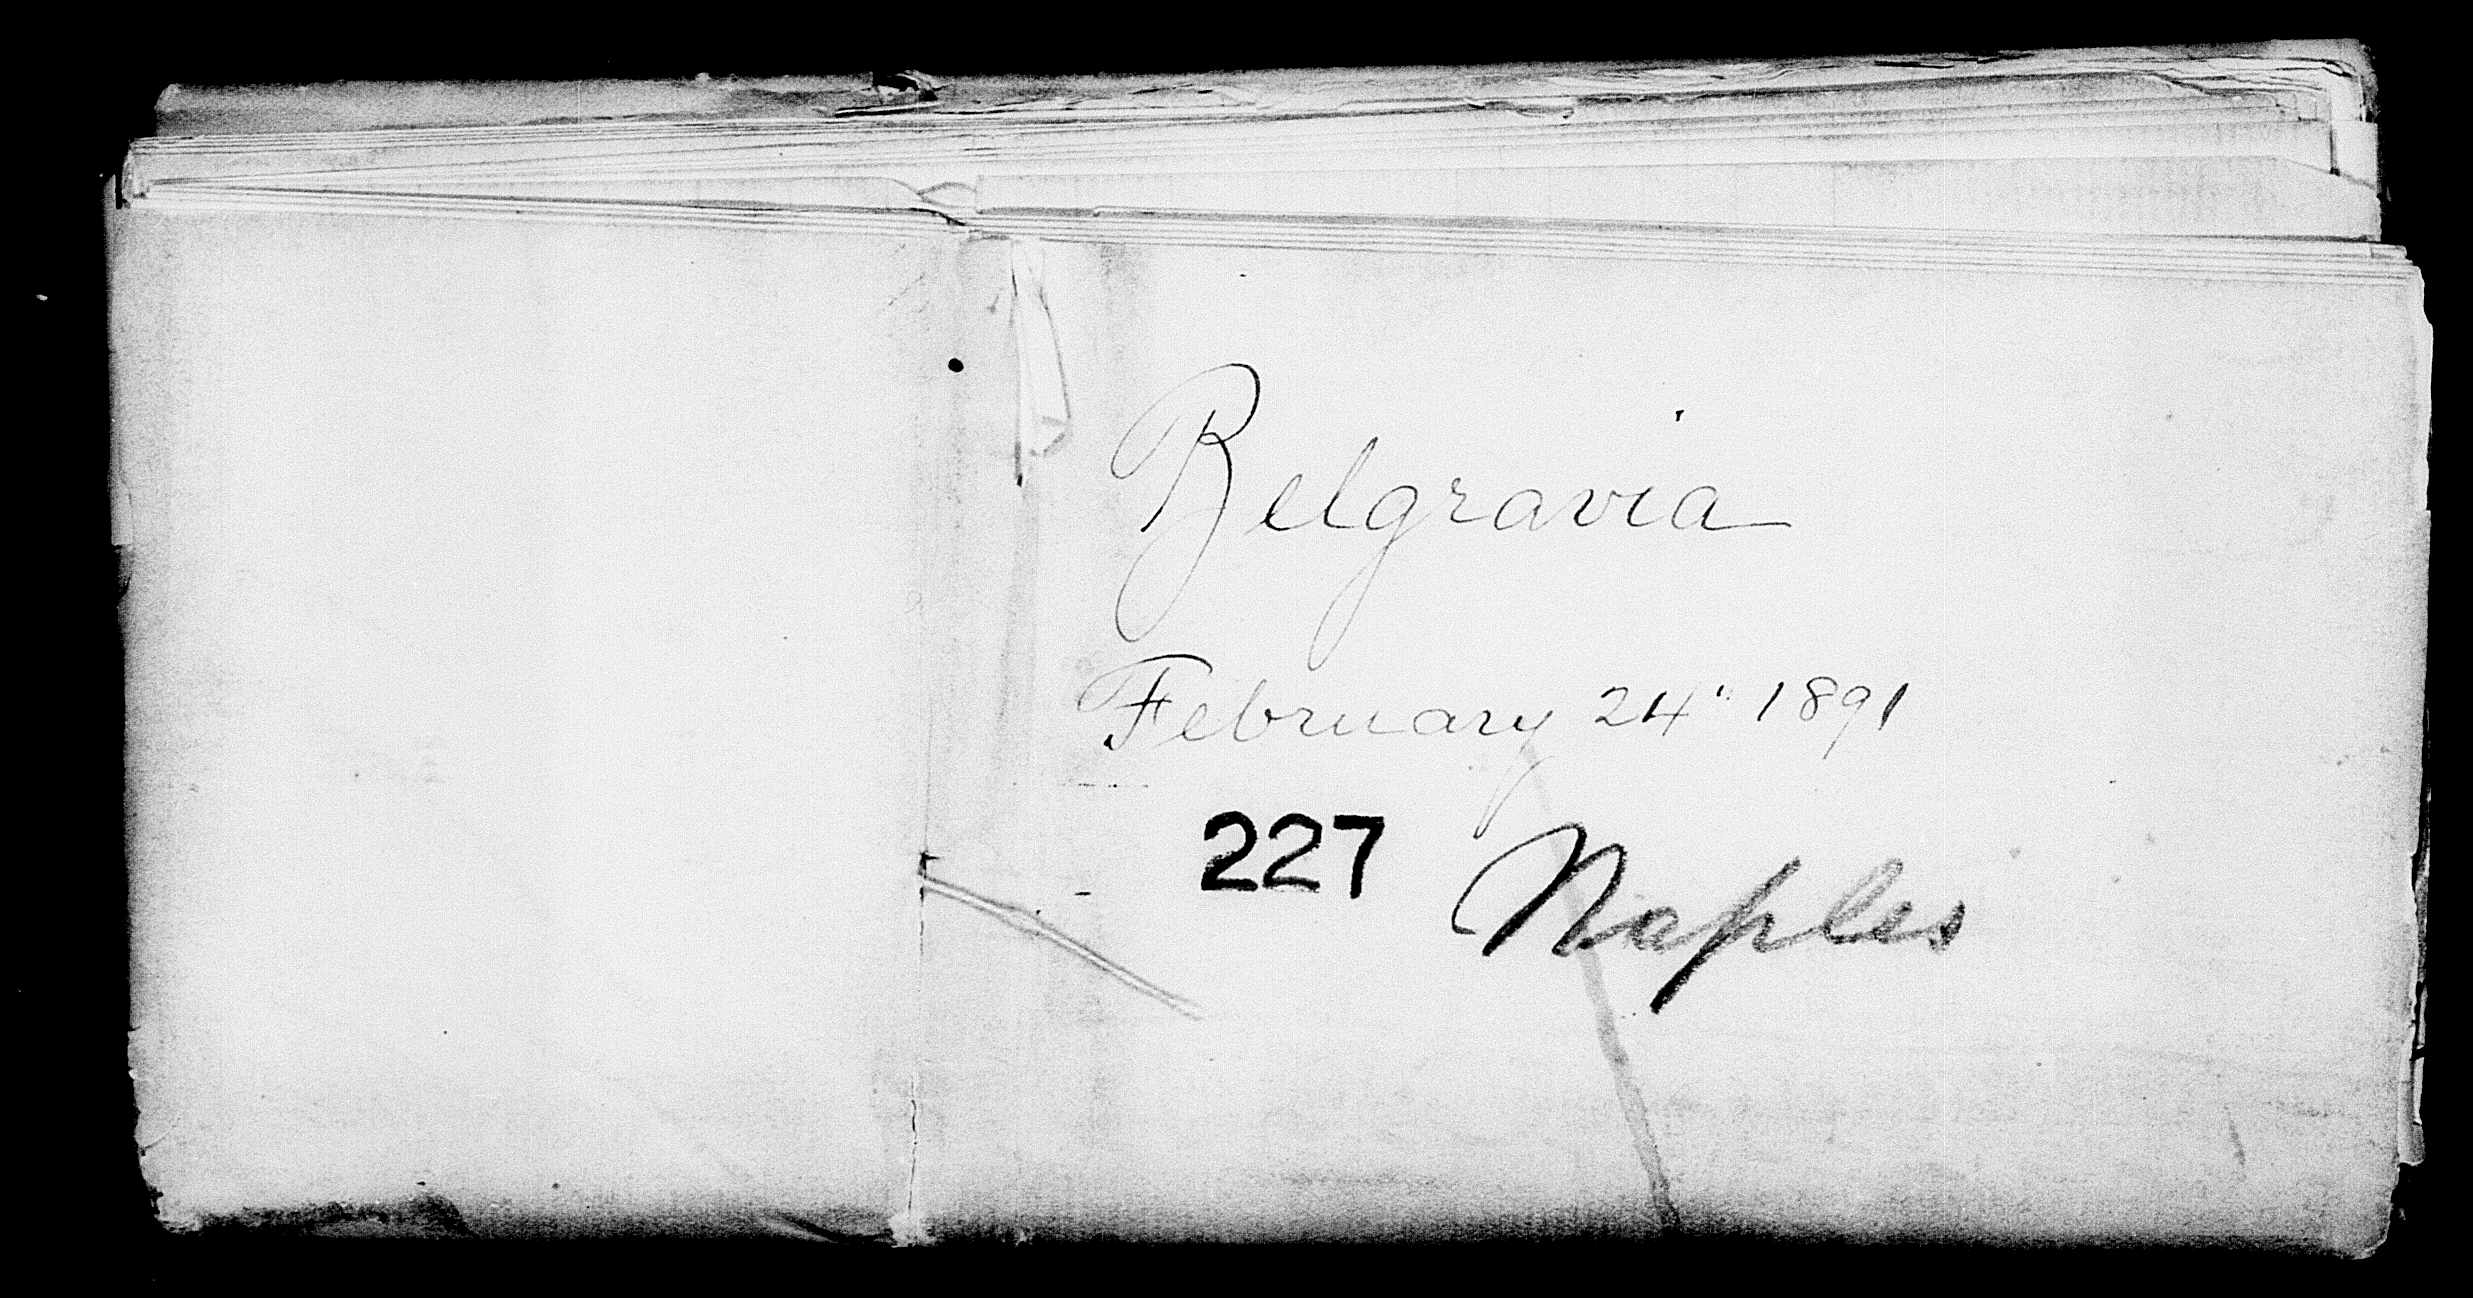 Belgravia
February 24" 1891
227
Naples